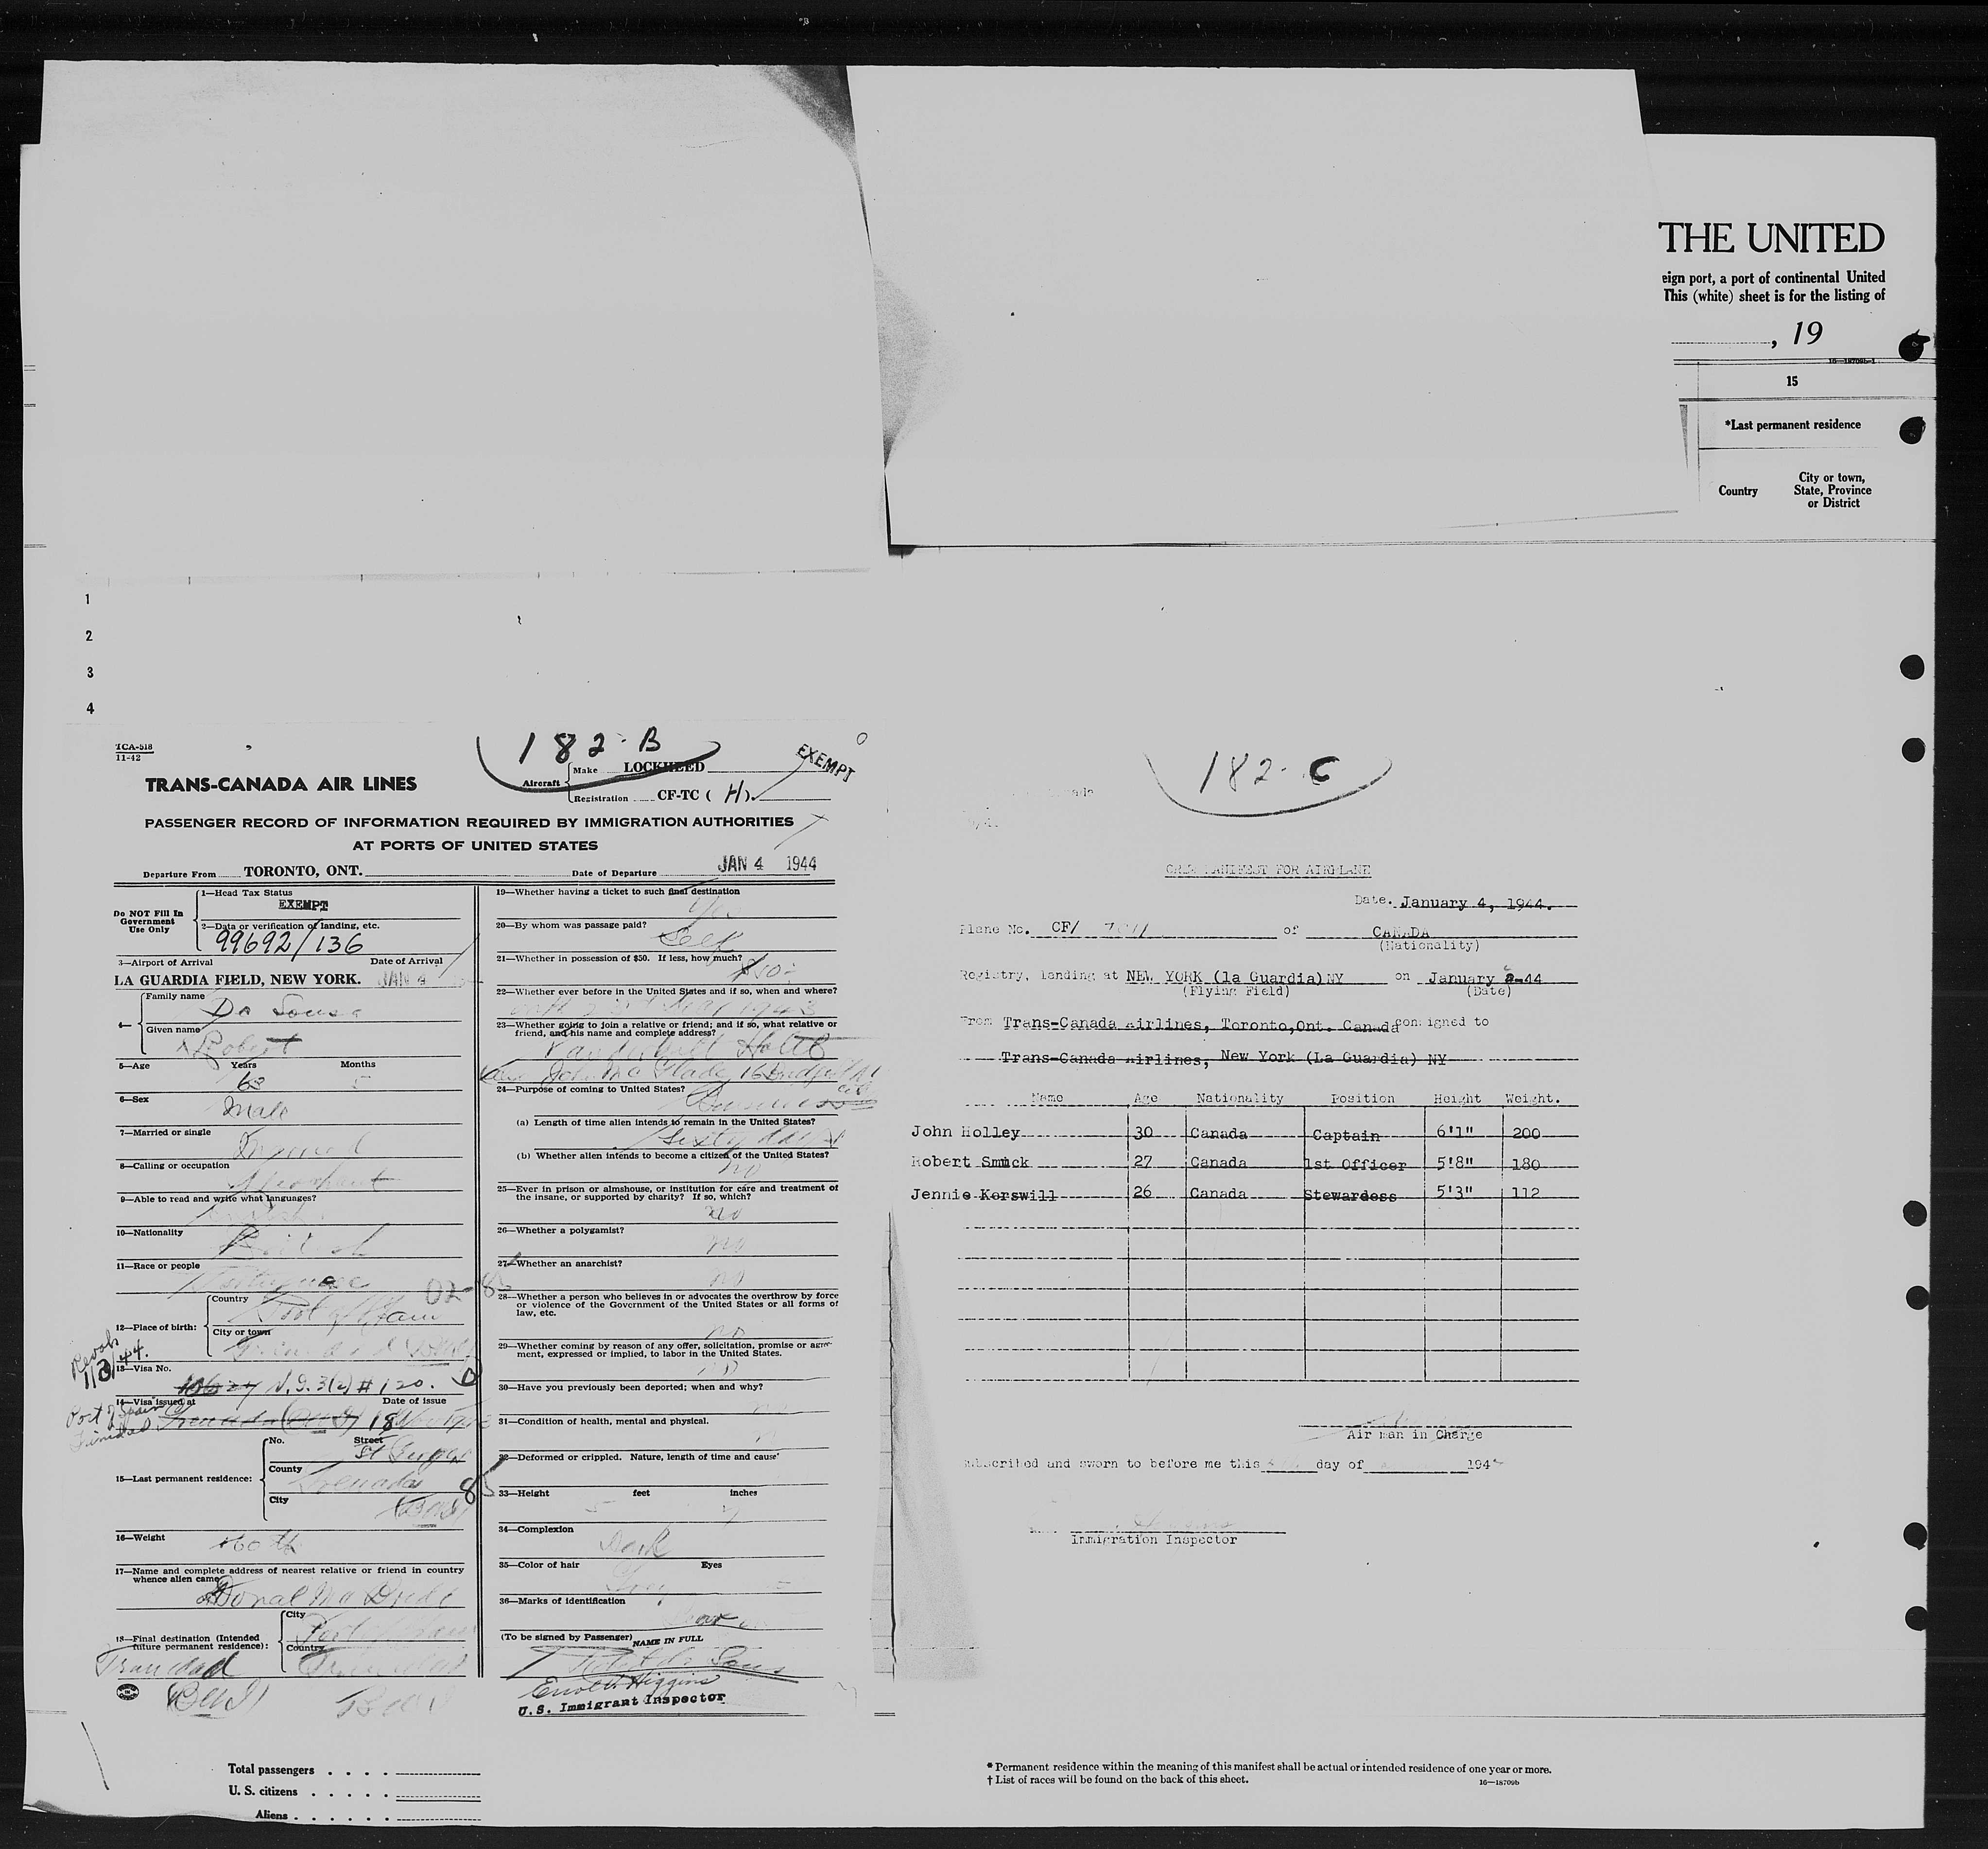 THE UNITED
eign port, a port of continental United
This (white) sheet is for the listing of
, 19
16—18709b-1
15
*Last permanent residence
Country
City or town, State, Province or District
1
2
3
4
TCA-518
11-42
182-B
EXEMPT
TRANS-CANADA AIR LINES
Aircraft
Make LOCKHEED
Registration CF-TC ( H )
PASSENGER RECORD OF INFORMATION REQUIRED BY IMMIGRATION AUTHORITIES
AT PORTS OF UNITED STATES
Departure From TORONTO, ONT. Date of Departure JAN 4 1944
Do NOT Fill In Government Use Only
1—Head Tax Status
EXEMPT
2—Data or verification of landing, etc.
99692/136
3—Airport of Arrival Date of Arrival
LA GUARDIA FIELD, NEW YORK. JAN 4
4— Family name
Da Sousa
Given name
Robert
5—Age Years Months
63
6—Sex
Male
7—Married or single
8—Calling or occupation
9—Able to read and write what languages?
10—Nationality
British
11—Race or people
Portuguese
02-85
12—Place of birth: Country
Port of Spain
City or town
Trinidad
13—Visa No.
N.I. 3(2) # 120.
14—Visa issued at Date of issue
Port of Spain
Trinidad
Grenada (BWI) 18
15—Last permanent residence: No. Street
St Georges
County
Grenada
City
(BWI)
85
16—Weight
160 lb
17—Name and complete address of nearest relative or friend in country whence alien came
18—Final destination (Intended future permanent residence): City
Port of Spain
Country
Trinidad
Trinidad
(BWI)
19—Whether having a ticket to such final destination
Yes
20—By whom was passage paid?
Self
21—Whether in possession of $50. If less, how much?
$50
22—Whether ever before in the United States and if so, when and where?
1943
23—Whether going to join a relative or friend; and if so, what relative or friend, and his name and complete address?
Vanderbilt Hotel
24—Purpose of coming to United States?
Business
(a) Length of time alien intends to remain in the United States?
Sixty days
(b) Whether alien intends to become a citizen of the United States?
no
25—Ever in prison or almshouse, or institution for care and treatment of the insane, or supported by charity? If so, which?
no
26—Whether a polygamist?
no
27—Whether an anarchist?
no
28—Whether a person who believes in or advocates the overthrow by force or violence of the Government of the United States or all forms of law, etc.
no
29—Whether coming by reason of any offer, solicitation, promise or agreement, expressed or implied, to labor in the United States.
no
30—Have you previously been deported; when and why?
no
31—Condition of health, mental and physical.
32—Deformed or crippled. Nature, length of time and cause
33—Height feet inches
5 7
34—Complexion
Dark
35—Color of hair Eyes
Grey
36—Marks of identification
(To be signed by Passenger) NAME IN FULL
Robert da Sousa
Errol V. Higgins
U.S. Immigrant Inspector
Total passengers
U. S. citizens
Aliens
182-C
CREW MANIFEST FOR AIRPLANE
Date. January 4, 1944.
Plane No. CF/ of CANADA
(Nationality)
Registry, landing at NEW YORK (la Guardia)NY on January 4-44
(Flying Field) (Date)
From Trans-Canada Airlines, Toronto,Ont. Canada consigned to
Trans-Canada Airlines, New York (La Guardia) NY
Name Age Nationality Position Height Weight.
John Holley 30 Canada Captain 6'1" 200
Robert Smuck 27 Canada 1st Officer 5'8" 180
Jennie Kerswill 26 Canada Stewardess 5'3" 112
Air man in Charge
Subscribed and sworn to before me this day of 194
Immigration Inspector
* Permanent residence within the meaning of this manifest shall be actual or intended residence of one year or more.
† List of races will be found on the back of this sheet.
16—18709b